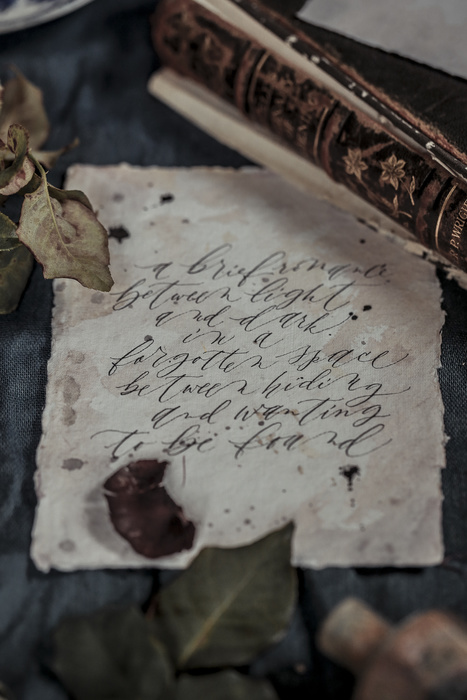 a brief romance
between light
and dark,
in a
forgotten space
between hiding
and wanting
to be found
P. WRIGHT